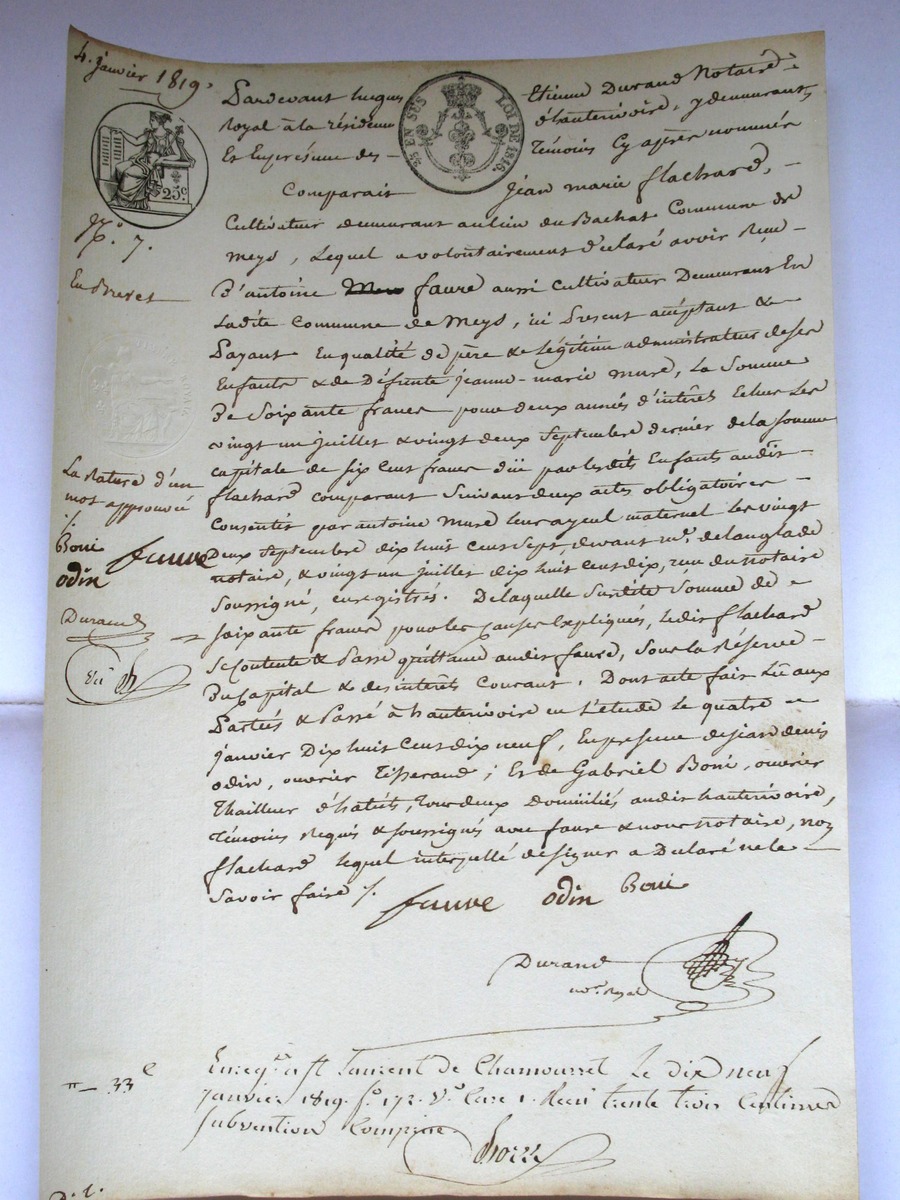 4. janvier 1819.
Pardevant hugues Etienne Durand Notaire
25 EN SUS LOI DE 1816.
Royal à la résidence d'hauterivoire, y demeurant
Et En présence des témoins Cy après nommés
25c.
Comparait Jean marie flachard,
Cultivateur demeurant au lieu du Bachat Commune de
No. 7.
Meys, Lequel a volontairement déclaré avoir Reçu
En Brevet
D'antoine faure aussi cultivateur Demeurant En
Ladite Commune de Meys, ici présent acceptant &
payant En qualité de père & légitime administrateur de ses
Enfants & de Défunte jeanne-marie mure, La Somme
De Soixante francs pour deux années d'intérêt Echus Les
vingt un juillet & vingt deux Septembre dernier de la somme
La Rature d'un
mot approuvée
capitale de six cent francs düe par lesdits Enfants audit
flachard comparant Suivant deux actes obligatoires
Consentis par antoine mure leur ayeul maternel Les vingt
Boni
faure
odin
Deux Septembre dix huit cent sept, devant me. delanglade
notaire, & vingt un juillet dix huit cent dix, reçu du notaire
Durand
Soussigné, enregistrés. De laquelle Susdite Somme de
soixante francs pour les causes Expliquées, ledit flachard
Se Contente & Passe quittance audit faure, Sous la Réserve
Du Capital & des intérêts Courant. Dont acte fait Lû aux
Parties & Passé à hauterivoire en L'étude Le quatre
janvier Dix huit Cent dix neuf, En présence de jean denis
odin, ouvrier Tisserand; Et de Gabriel Boni, ouvrier
Thailleur d'habits, tous deux Domiciliés audit hauterivoire,
Témoins Requis & soussignés avec faure & nous notaire, non
flachard lequel interpellé de signer a Déclaré ne le
Savoir faire
faure odin Boni
Durand
nore. Royal
33c
Enregré. à St Laurent de Chamousset Le dix neuf
janvier 1819. fo. 172. Vo. Case 1. Reçu trente trois Centimes
Subvention Comprise